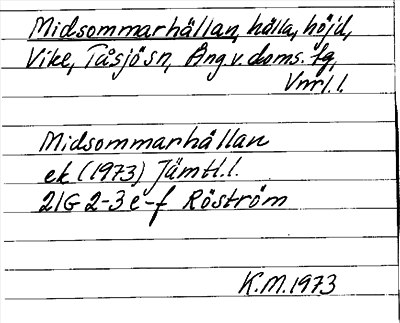 Midsommarhällan, hälla, höjd,
Vike, Tåsjö sn, Ång. v. doms. fg,
Vnrl. l.
Midsommarhällan
ek (1973) Jämtl. l.
21G 2-3 e-f Röström
K.M. 1973